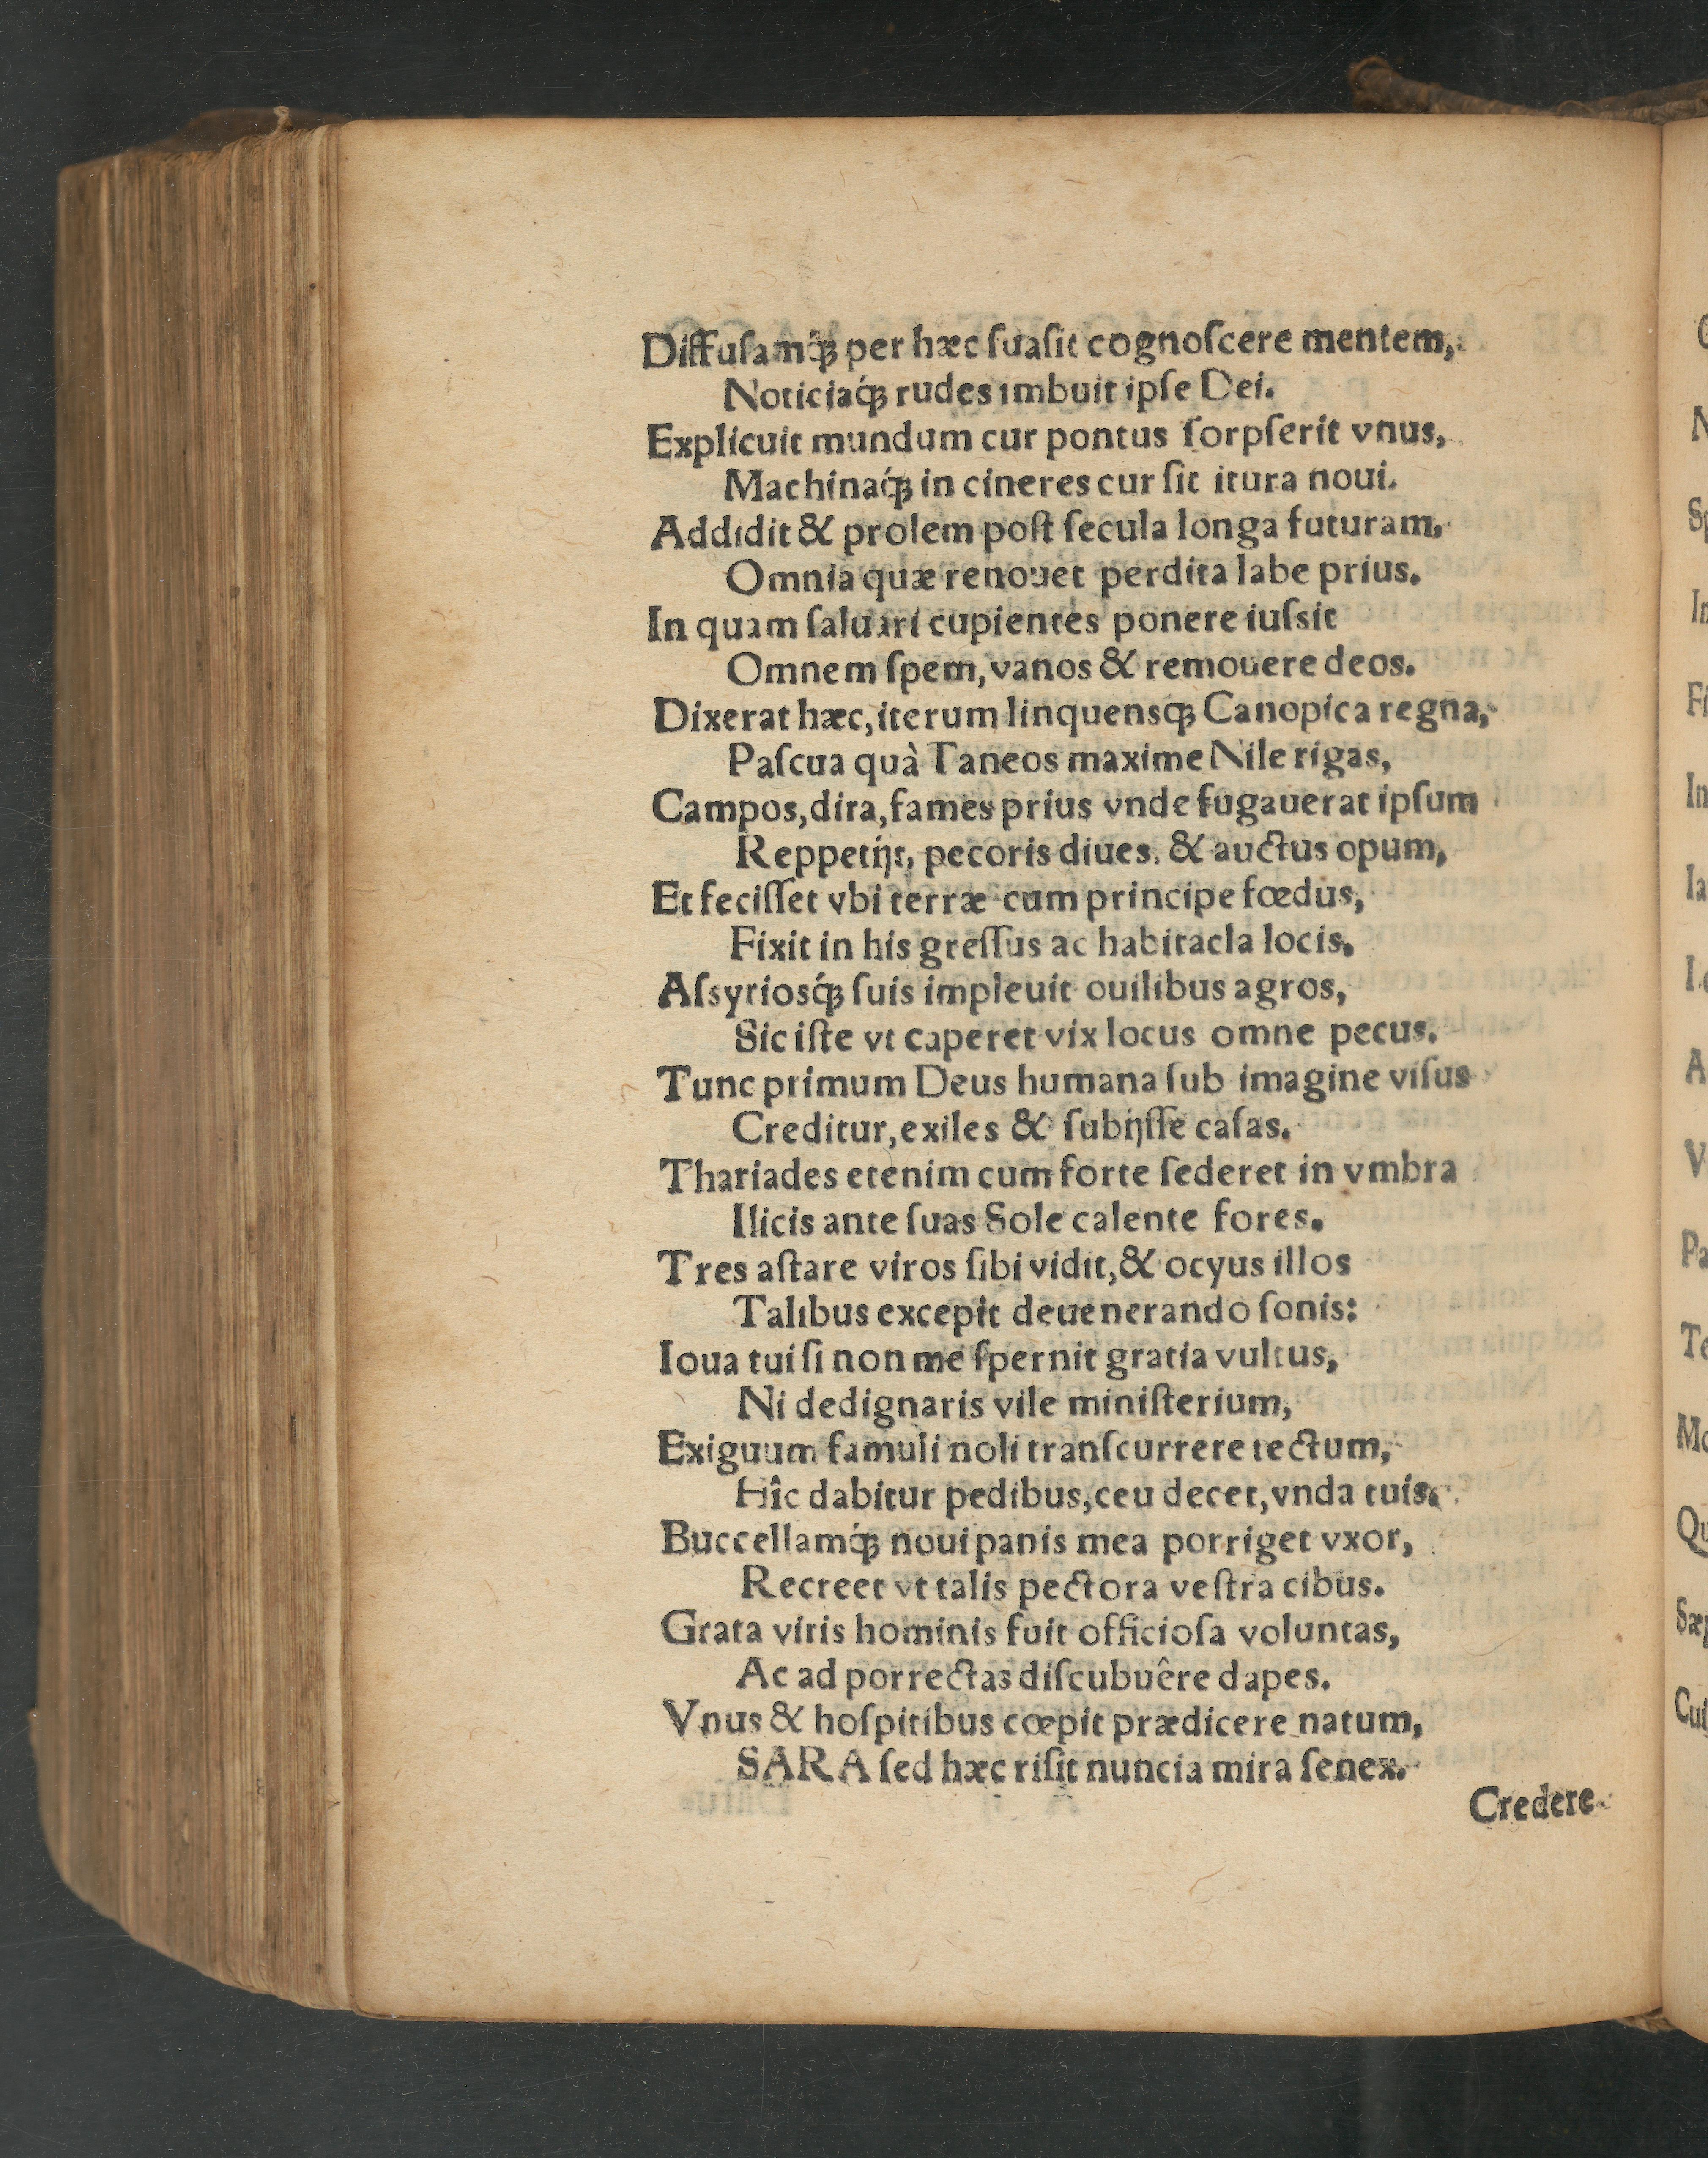 Diffuſamq́ꝫ per hæc ſuaſit cognoſcere mentem,
Noticiaq́ꝫ rudes imbuit ipſe Dei.
Explicuit mundum cur pontus ſorpſerit vnus,
Machinaq́ꝫ in cineres cur ſit itura noui.
Addidit & prolem poſt ſecula longa futuram,
Omnia quæ renouet perdita labe prius.
In quam ſaluari cupientes ponere iuſsit
Omnem ſpem, vanos & remouere deos.
Dixerat hæc, iterum linquensqꝫ Canopica regna,
Paſcua quà Taneos maxime Nile rigas,
Campos, dira, fames prius vnde fugauerat ipſum
Reppetijt, pecoris diues, & auctus opum,
Et feciſſet vbi terræ cum principe fœdus,
Fixit in his greſſus ac habitacla locis.
Aſsyriosq́ꝫ ſuis impleuit ouilibus agros,
Sic iſte vt caperet vix locus omne pecus.
Tunc primum Deus humana ſub imagine viſus
Creditur, exiles & ſubijſſe caſas.
Thariades etenim cum forte ſederet in vmbra
Ilicis ante ſuas Sole calente fores.
Tres aſtare viros ſibi vidit, & ocyus illos
Talibus excepit deuenerando ſonis:
Ioua tui ſi non me ſpernit gratia vultus,
Ni dedignaris vile miniſterium,
Exiguum famuli noli tranſcurrere tectum,
Hîc dabitur pedibus, ceu decet, vnda tuis.
Buccellamq́ꝫ noui panis mea porriget vxor,
Recreet vt talis pectora veſtra cibus.
Grata viris hominis fuit officioſa voluntas,
Ac ad porrectas diſcubuêre dapes.
Vnus & hoſpitibus cœpit prædicere natum,
SARA ſed hæc riſit nuncia mira ſenex.
Credere